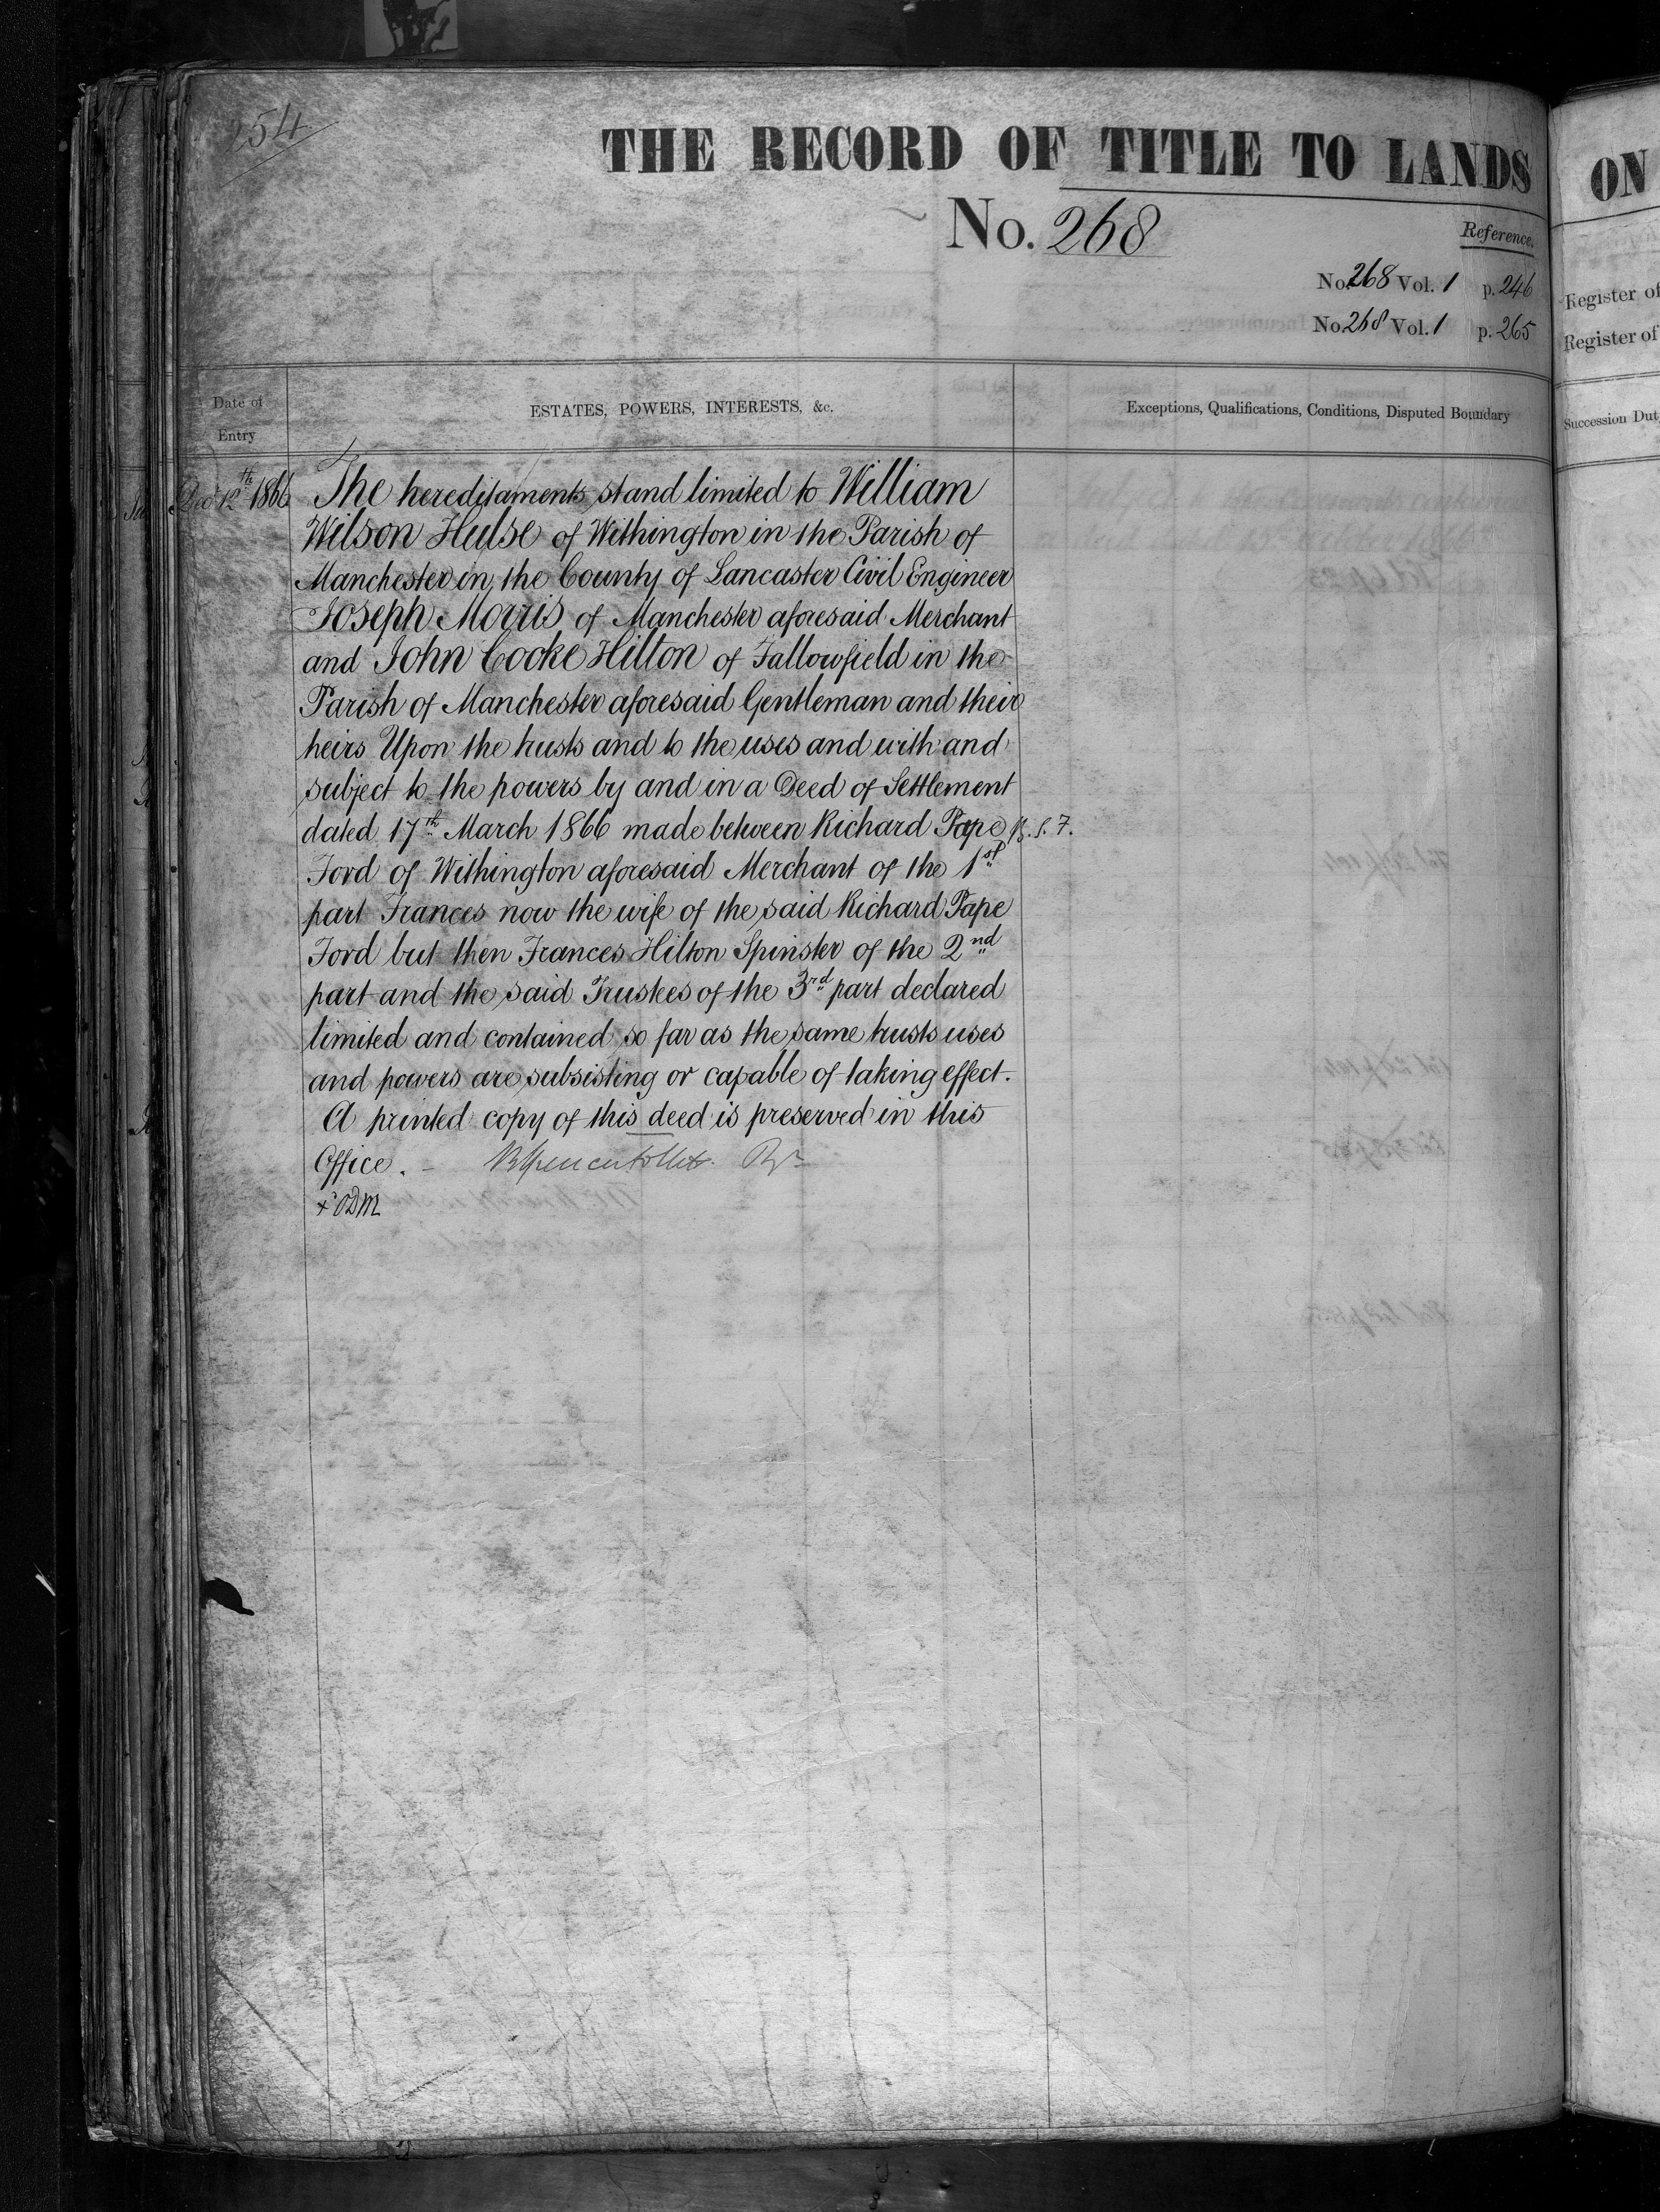 254
THE RECORD OF TITLE TO LANDS
No. 268
Reference.
No. 268 Vol. 1 p. 246
No. 268 Vol. 1 p. 265
Date of
Entry
ESTATES, POWERS, INTERESTS, &c.
Exceptions, Qualifications, Conditions, Disputed Boundary
Dec 12th 1866
The hereditaments stand limited to William
Wilson Hulse of Withington in the Parish of
Manchester in the County of Lancaster Civil Engineer
Joseph Morris of Manchester aforesaid Merchant
and John Cocke Hilton of Fallowfield in the
Parish of Manchester aforesaid Gentleman and their
heirs Upon the trusts and to the uses and with and
subject to the powers by and in a Deed of Settlement
dated 17th March 1866 made between Richard Pape B.S.F.
Ford of Withington aforesaid Merchant of the 1st
part Frances now the wife of the said Richard Pape
Ford but then Frances Hilton Spinster of the 2nd
part and the said Trustees of the 3rd part declared
limited and contained so far as the same trusts uses
and powers are subsisting or capable of taking effect.
A printed copy of this deed is preserved in this
Office. -
ON
Register of
Register of
Succession Dut